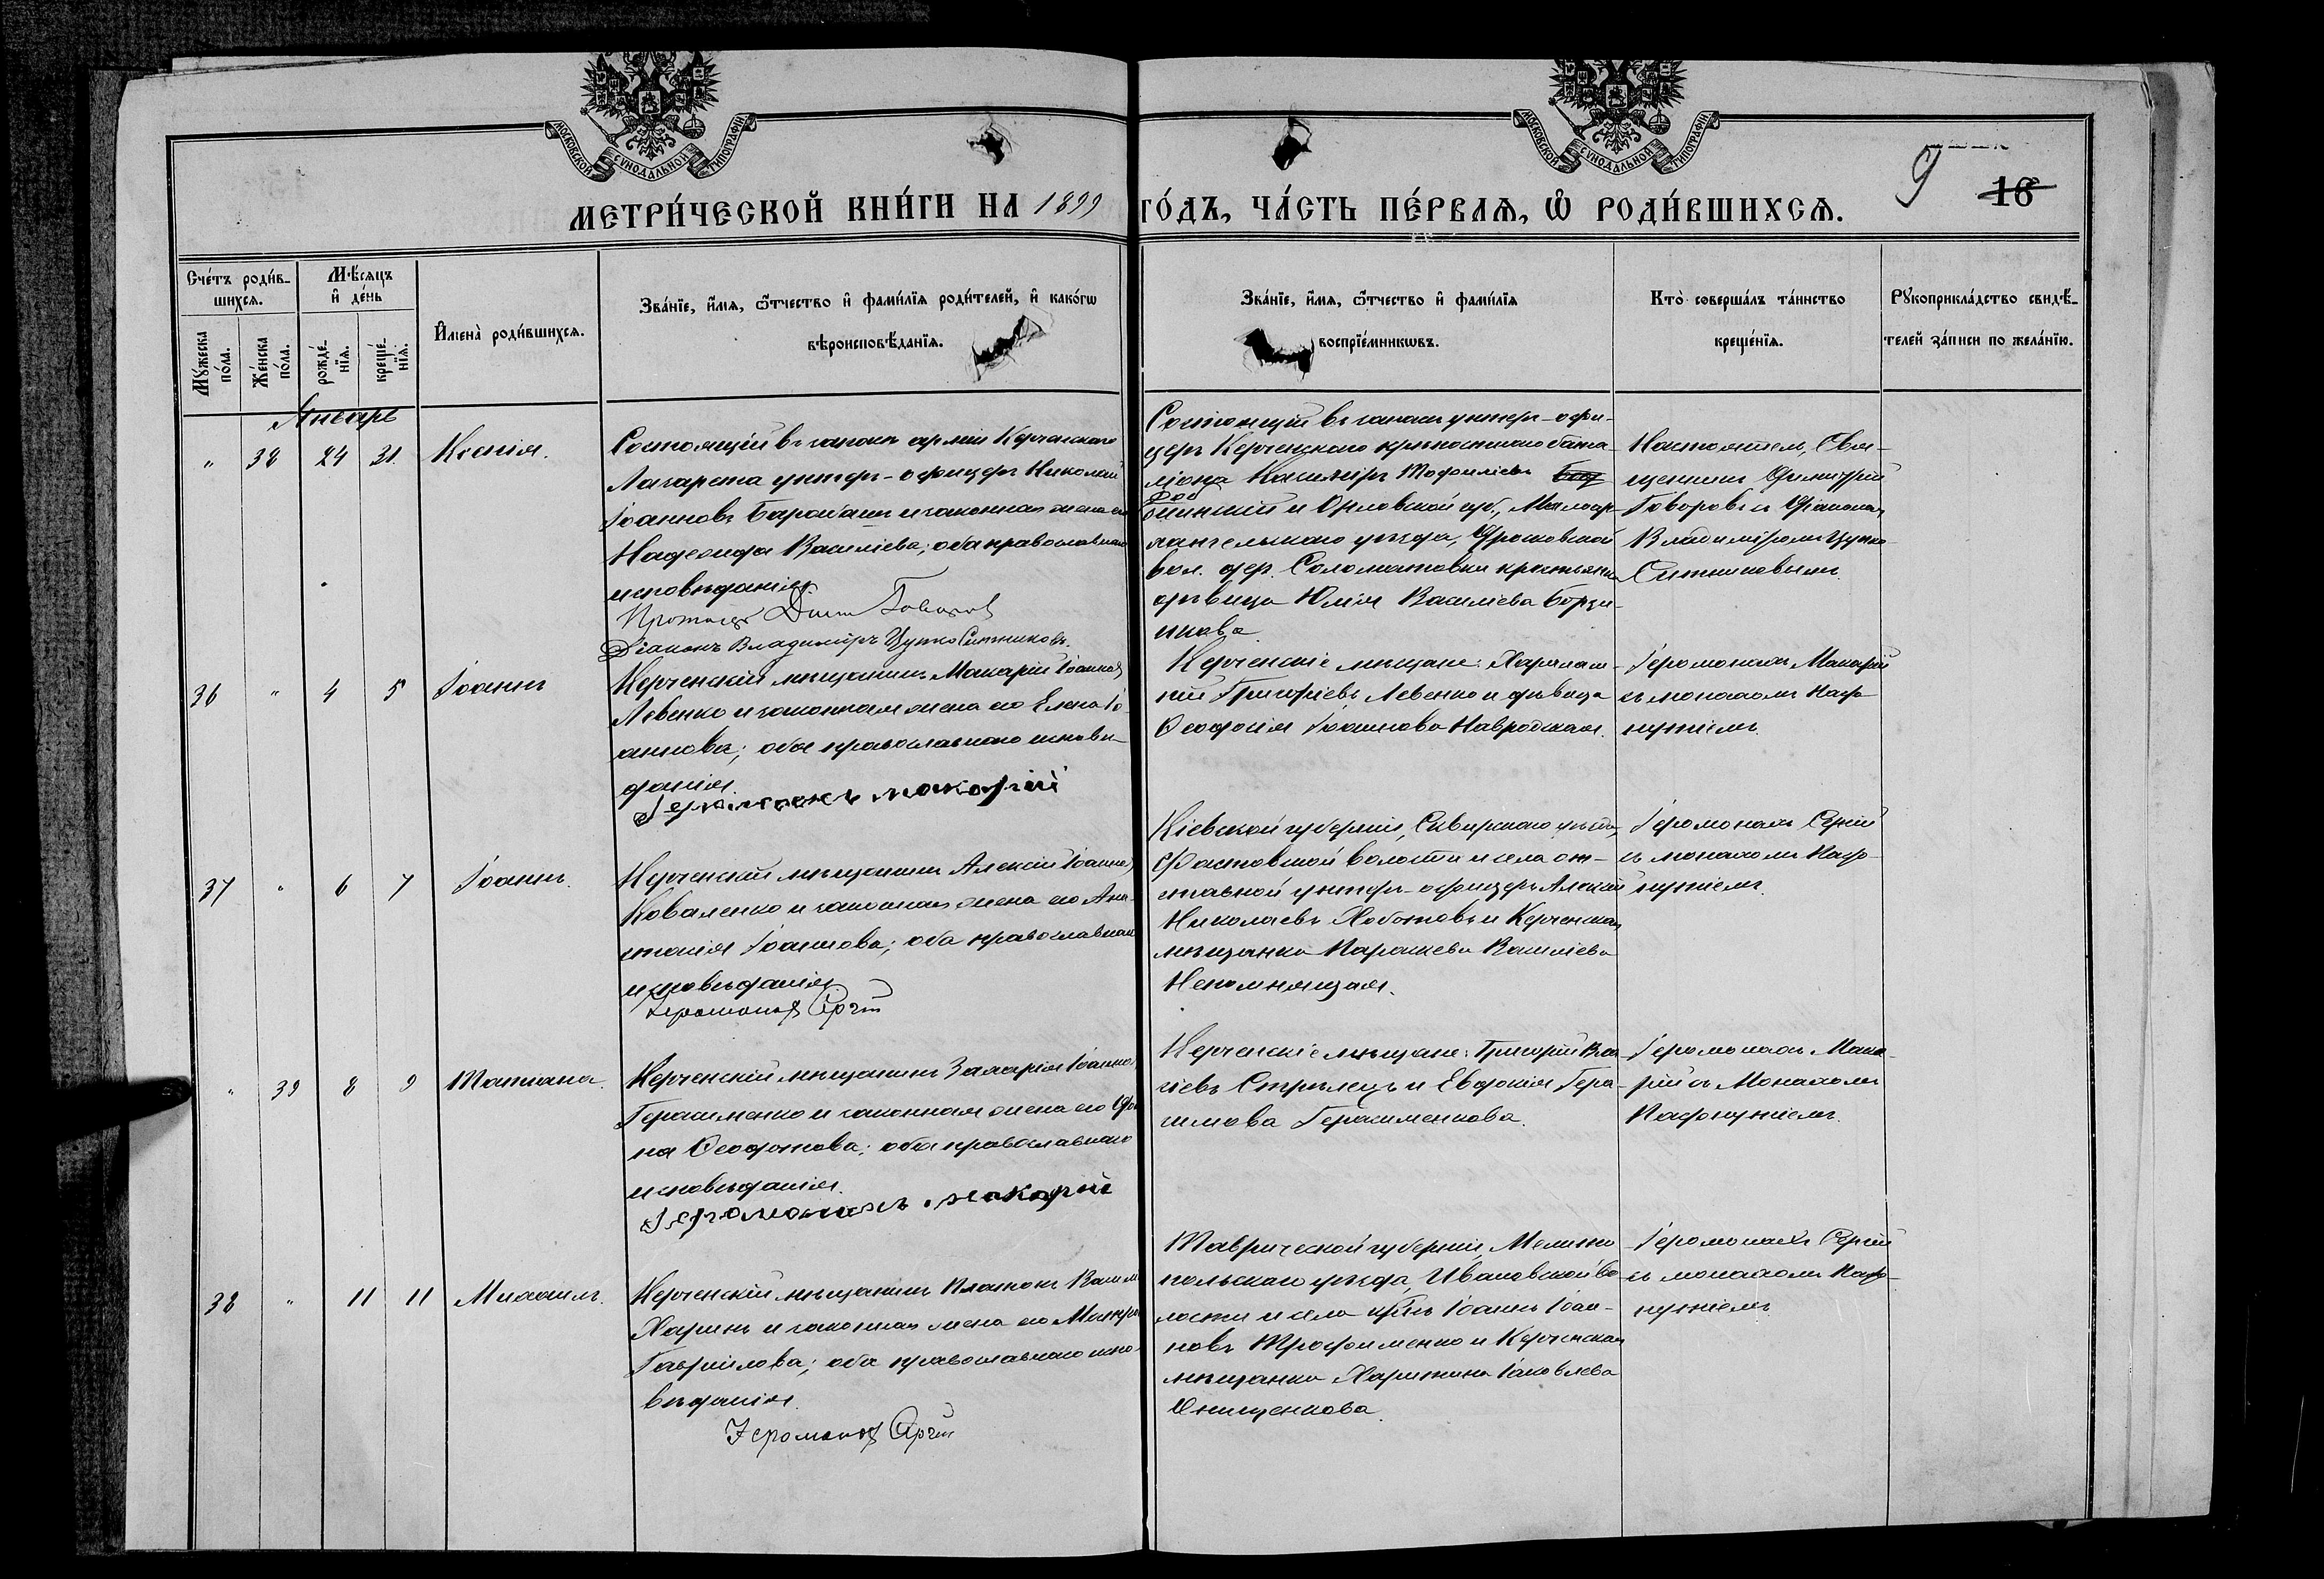 МОСКОВСКОЙ СѴНОДАЛЬНОЙ ТИПОГРАФІИ
МОСКОВСКОЙ СѴНОДАЛЬНОЙ ТИПОГРАФІИ
МЕТРИ́ЧЕСКОЙ КНИ́ГИ НА 1899 ГО́ДЪ, ЧА́СТЬ ПЕ́РВАѦ, Ѡ҆ РОДИ́ВШИХСѦ.
9 16
Сче́тъ роди́в-
шихсѧ.
Мꙋ́жеска
по́ла.
Же́нска
по́ла.
Мѣ́сѧцъ
и҆ де́нь
рожде́-
нїѧ.
креще́-
нїѧ.
И҆мена̀ роди́вшихсѧ.
Зва́нїе, и҆́мѧ, ѻ҆́тчество и҆ фами́лїѧ роди́телей, и҆ како́гѡ
вѣроисповѣ́данїѧ.
Зва́нїе, и҆́мѧ, ѻ҆́тчество и҆ фами́лїѧ
воспрїе́мникѡвъ.
Кто̀ соверша́лъ та́инство
креще́нїѧ.
Рꙋкоприкла́дство свидѣ́-
телей за́писи по жела́нїю.
Январь
" 38 24 31. Ксенія.
Состоящій въ запасѣ арміи Керченскаго
Лазарета унтеръ-офицеръ Николай
Іоанновъ Барабашъ и законная жена его
Надежда Василіева; оба православнаго
исповѣданія.
Діаконъ Владиміръ Цупко Ситниковъ.
Состоящій въ запасѣ унтеръ-офи-
церъ Керченскаго крѣпостнаго бата-
ліона Казиміръ
и Орловской губ., Малоар-
хангельскаго уѣзда, Дросковской
вол. дер. Соломатовки крестьянка
дѣвица Юлія Василіева Борзи-
нкова.
Настоятель, Свя-
щенникъ Димитрій
Говоровъ съ Діакономъ
Владиміромъ Цупко
Ситниковымъ.
36 " 4 5 Іоаннъ
Керченскій мѣщанинъ Макарій Іоанновъ
Левенко и законная жена его Елена Іо-
аннова; оба православнаго исповѣ-
данія.
Іеромонахъ Макарій
Керченскіе мѣщане: Харлам-
пій Григоріевъ Левенко и дѣвица
Ѳеодосія Іоаннова Навродская.
Іеромонахъ Макарій
съ монахомъ Паф-
нутіемъ.
37 " 6 7 Іоаннъ.
Керченскій мѣщанинъ Алексій Іоанновъ
Коваленко и законная жена его Ана-
стасія Іоаннова; оба православнаго
исповѣданія
Іеромонахъ Сергій
Кіевской губерніи, Сквирскаго уѣзда,
Фастовской волости и села от-
ставной унтеръ-офицеръ Алексій
Николаевъ Хоботовъ и Керченская
мѣщанка Параскева Василіева
Непомнящая.
Іеромонахъ Сергій
съ монахомъ Паф-
нутіемъ.
" 39 8 9 Татіана.
Керченскій мѣщанинъ Захарія Іоанновъ
Герасименко и законная жена его
на Ѳеодотова; оба православнаго
исповѣданія.
Іеромонахъ Макарій
Керченскіе мѣщане: Григорій Вла-
сіевъ Стрѣлецъ и Евдокія Гера-
симова Герасименкова.
Іеромонахъ Мака-
рій съ Монахомъ
Пафнутіемъ.
38 " 11 11 Михаилъ.
Керченскій мѣщанинъ Платонъ Васил.
Харинъ и законная жена его Матро
Гавріилова; оба православнаго испо-
вѣданія.
Іеромонахъ Сергій
Таврической губерніи, Мелито
польскаго уѣзда, Ивановской во-
лости и села кр-нъ Іоаннъ Іоан-
новъ Трофименко и Керченская
мѣщанка Харитина Іаковлева
Онищенкова.
Іеромонахъ Сергій
съ монахомъ Паф-
нутіемъ